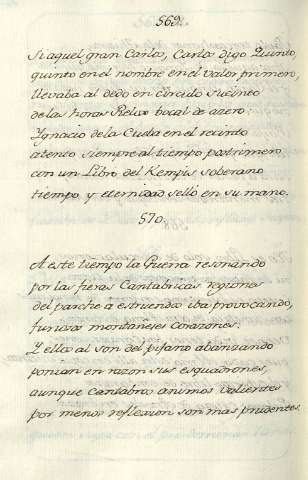 569.
Si aquel gran Carlo, Carlo digo Quinto,
quinto en el nombre en el valor primero,
llevaba al dedo en circulo sucinto
de las horas Relox bocal de azero:
Ygnacio de la Cueba en el recinto
atento siempre al tiempo postrimero,
con un Libro del Kempis soberano
tiempo, y eternidad sellò en su mano.
570.
A este tiempo la Guerra resonando
por las fieras Cantabricas regiones
del parche à estruendo iba provocando,
furiosos montañeses corazones:
Y ella al son del pifano
ponian en razon sus esquadrones,
aunque Cantabros animos valientes
por menos reflexion son mas prudentes.